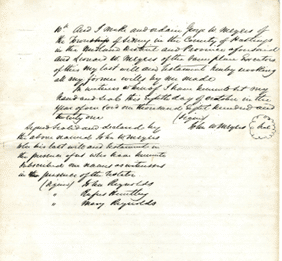 10th And I make and ordain George W Meyers of
the Township of Sidney in the County of Hastings
in the Midland District and Province aforesaid
and Leonard W Meyers of the same place Executors
of this my last will and testament hereby revoking
all former wills by me made
In witness whereof I have hereunto set my
hand and seal this eighth day of October in the
year of our Lord one thousand eight hundred and
twenty one (Signed)
John W Meyers
Signed sealed and declared by
the above named John W Meyers
as his last will and testament in
the presence of us who have hereunto
subscribed our names as witnesses
in the presence of the testator
(Signed) John Reynolds
" Rufus Huntley
" Mary Reynolds